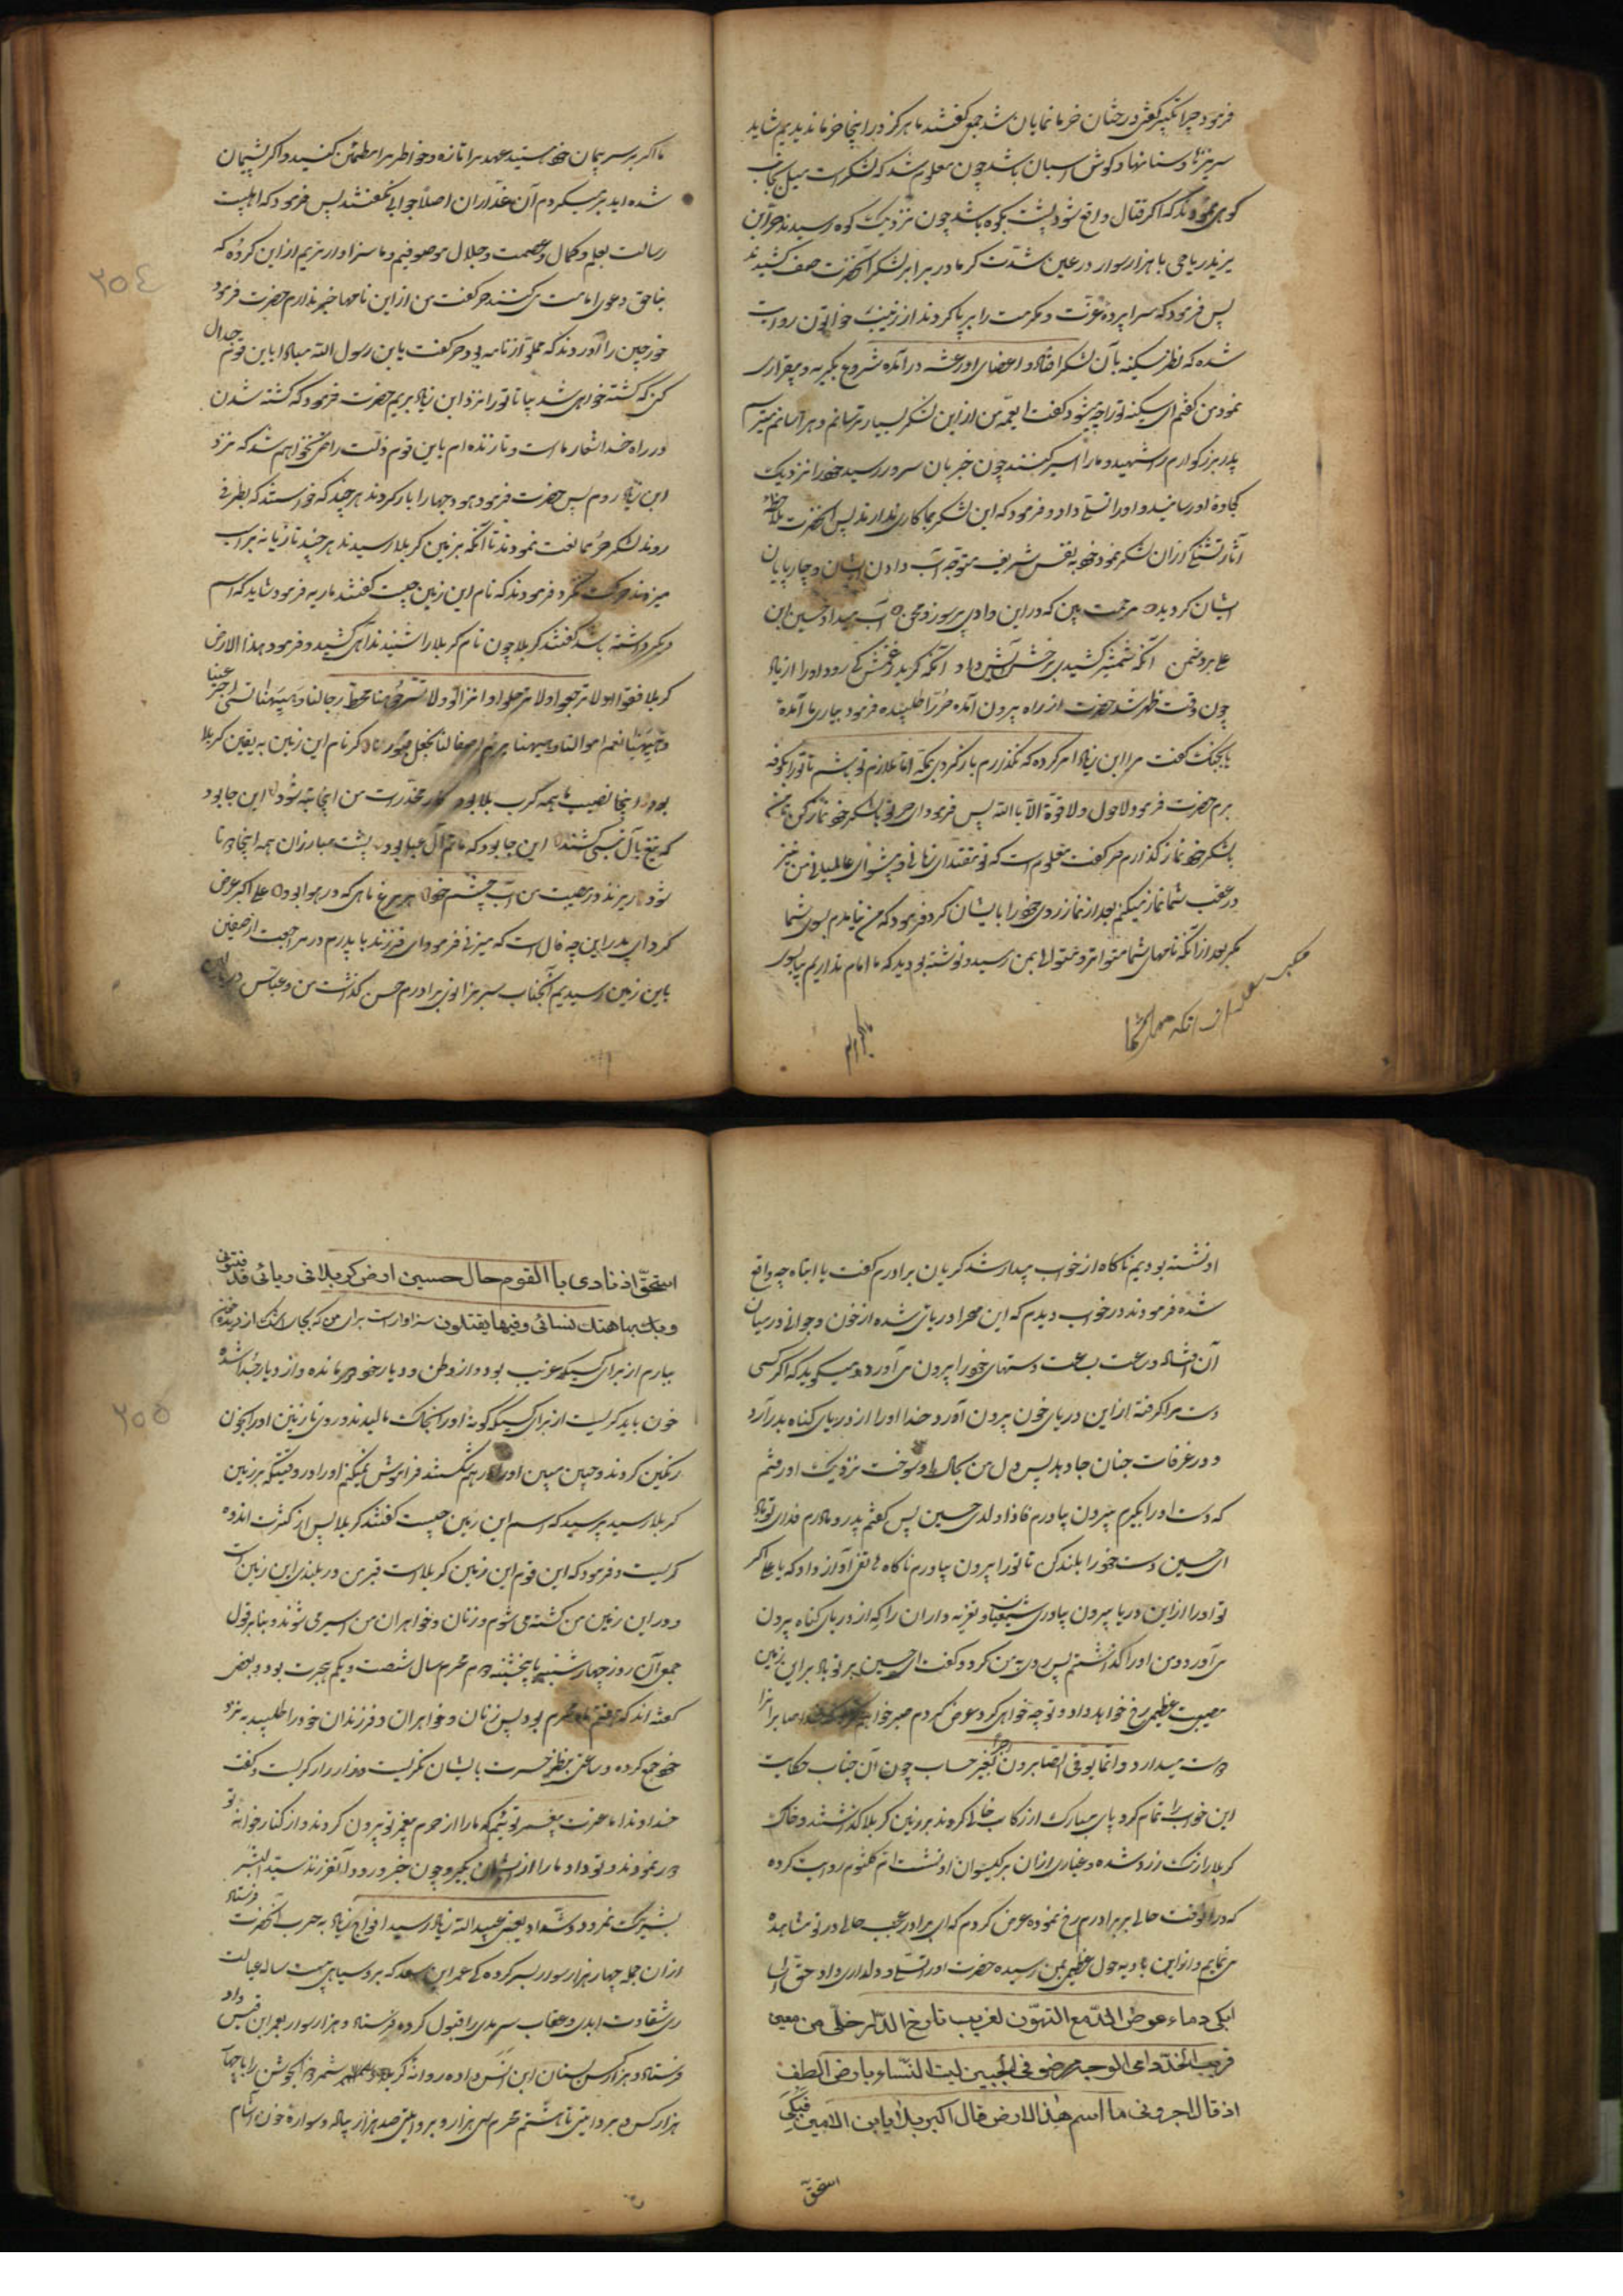 فرمود چرا تکبیر گفتی درختان خرما نمایان شد جمعی گفتند ما هرگز در اینجا خرما ندیدیم شاید
سر نیزها و سنانها و گوش اسبان باشد چون معلوم شد که لشکر است میل بجانب
کوهی نمودند که اگر قتال واقع شود پشت بکوه باشد چون نزدیک کوه رسیدند حر ابن
یزید ریاحی با هزار سوار در عین شدت گرما در برابر لشکر آنحضرت صف کشیدند
پس فرمود که سراپرده عزت و مکرمت را برپا کردند از زینب خواتون روایت
شده که نظر سکینه بآن لشکر افتاد و اعضای او رعشه در آمده شروع بگریه و بیقراری
نمود من گفتم ای سکینه تو را چه میشود گفت ای عمه من از این لشکر بسیار ترسانم و هراسانم میترسم
پدر بزرگوارم را شهید و ما را اسیر کنند چون خبر بان سرور رسید خود را نزدیک
کجاوه او رسانید و او را تسلی داد و فرمود که این لشکر بما کاری ندارند پس آنحضرت
آثار تشنگی از ان لشکر نمود خود بنفس شریف متوجه آب دادن ایشان و چارپایان
ایشان گردید مرحمت بین که در این وادی پرسوز و محن آب میداد حسین ابن
علی بر دشمن آنکه شمشیر کشیدی برخش آبش داد
چون وقت ظهر شد حضرت از راه بیرون آمده حر را طلبیده فرمود بیاری ما آمدهٔ
یا بجنگ گفت مرا ابن زیاد امر کرده که نگذارم باز گردی بمکه اما ملازم تو باشم تا تو را بکوفه
برم حضرت فرمود لا حول ولا قوة الا بالله پس فرمود ای حر تو با لشکر خود نماز کن تا من
با لشکر خود نماز گذارم حر گفت معلوم است که تو مقتدای و پیشوای عالمیان من نیز
در عقب شما نماز میکنم بعد از نماز روی خود را بایشان کرد فرمود که من نیامدم بسوی شما
مگر بعد از آنکه نامهای شما متواتر و متوالی بمن رسید و نوشته بودید که ما امام نداریم بیا بسوی
ما اگر بر سر پیمان خود هستید عهد مرا تازه و خاطر مرا مطمئن کنید و اگر پشیمان
شده اید بر میگردم آن غداران اصلا جوابی نگفتند پس فرمود که اهلبیت
رسالت بعلم و کمال و عصمت و جلال موصوفیم و ما سزاوارتریم از این گروه که
بناحق دعوی امامت می کنند حر گفت من از این نامها خبر ندارم حضرت فرمود
خورجین را آوردند که مملو از نامه بود حر گفت یا بن رسول الله مبادا با این قوم جدال
کنی که کشته خواهی شد بیا تا تو را نزد ابن زیاد بریم حضرت فرمود که کشته شدن
در راه خدا شعار ما است و تا زنده ام باین قوم ذلت راضی نخواهم شد که نزد
ابن زیاد روم پس حضرت فرمود هودجها را بار کردند هر چند که خواستند که بطرفی
روند لشکر حر ممانعت نمودند تا آنکه بزمین کربلا رسیدند هر چند تازیانه بر اسب
میزدند حرکت نکرد فرمودند که نام این زمین چیست گفتند ماریه فرمود شاید که اسم
دیگر داشته باشد گفتند کربلا چون نام کربلا را شنیدند آهی کشید و فرمود هذا الارض
کربلا قفوا ولا ترحلوا
نام این زمین به یقین کربلا
بود اینجا نصیب ما همه کرب بلا بود
که تیغ بآل نبی کشند این جا بود که ماتم آل عبا بود پشت مبارزان همه اینجا دو تا
شود ریزند در مصیبت من آب چشم خود هر مرغ و ماهی که در هوا بود علی اکبر عرض
کرد ای پدر این چه فال است که میزنی فرمود ای فرزند با پدرم در مراجعت از صفین
باین زمین رسیدیم آنجناب سر بزانوی برادرم حسن گذاشت من و عباس در بالین
٢٥٤
او نشسته بودیم ناگاه از خواب بیدار شد گریان برادرم گفت یا ابتاه چه واقع
شده فرمودند در خواب دیدم که این صحرا دریائی شده از خون و جوانی در میان
آن افتاده ساعت بساعت دستهای خود را بیرون می آورد و میگوید که اگر کسی
دست مرا گرفته از این دریای خون بیرون آورد خدا او را از دریای گناه بدر آرد
و در غرفات جنان جا دهد پس دل من بحال او سوخت نزدیک او رفتم
که دست او را بگیرم بیرون بیاورم فاذا ولدی حسین پس گفتم پدر و مادرم فدای تو باد
ای حسین دست خود را بلند کن تا تو را بیرون بیاورم ناگاه هاتفی آواز داد که یا علی اگر
تو او را از این دریا بیرون بیاوری شیعیان و تعزیه داران را که از دریای گناه بیرون
می آورد و من او را گذاشتم پس رو به من کرد و گفت ای حسین بر تو باد بر این زمین
مصیبت عظیمی رخ خواهد داد و تو چه خواهی کرد عرض کردم صبر خواهم کرد
دوست میدارد و انما یوفی الصابرون اجرهم بغیر حساب چون آن جناب حکایت
این خواب را تمام کرد پای مبارک از رکاب خالی کردند بر زمین کربلا گذاشتند و خاک
کربلا را رنگ زرد شده و غباری از ان بر گیسوان او نشست ام کلثوم روایت کرده
که در آنوقت حالی بر برادرم رخ نموده عرض کردم که ای برادر عجب حالی در تو مشاهده
می نمایم و از این بادیه هول عظیمی بمن رسیده حضرت او را تسلی و دلداری داد
ابکی دماء عوض الدمع التهون لغریب نازح الدار خلی من معین
قریب الخد دامی الوجه مرضوض الجبین لیت النساء بارض الطف
اذ قال اخبرونی ما اسم هذا الارض قال اکبر بلا یا بن الامین فبکی
استحق
استحق اذ نادی یا القوم حال حسین ارض کربلا
وبها هتک نسائی و فیها یقتلون سزاوار است برای من که بجای اشک از دیده خون
ببارم از برای کسیکه غریب بود و از وطن و دیار خود مانده و از دیار جدا شده
خون باید گریست از برای کسیکه گونهٔ او را بخاک مالیدند و روی نازنین او را بخون
رنگین کردند و جبین مبین او را در هم شکستند فراموش نمیکنم او را در وقتیکه بزمین
کربلا رسید پرسید که اسم این زمین چیست گفتند کربلا پس از کثرت اندوه
گریست و فرمود که این قوم این زمین کربلا است قبر من در بلندی این زمین است
و در این زمین من کشته می شوم و زنان و خواهران من اسیر می شوند و بنا بر قول
جمعی آن روز چهارشنبه یا پنجشنبه دوم محرم سال شصت و یکم هجرت بود و بعضی
گفته اند که هفتم ماه محرم بود پس زنان و خواهران و فرزندان خود را طلبید به نزد
خود جمع کرده و ساعتی بنظر حسرت بایشان نگریست و زار زار گریست و گفت
خداوندا ما عترت پیغمبر توئیم که ما را از حرم پیغمبر تو بیرون کردند و از کنار خوابه تو
دور نمودند و تو داد ما را از ایشان بگیر و چون خبر ورود آنفرزند سید البشر
بشیرکت نمرود و شداد یعنی عبیدالله زیاد رسید افواج زیاد به حرب آنحضرت فرستاد
از ان جمله چهار هزار سوار بسر کرده گی عمر ابن سعد که بروسیاهی بیست ساله
شقاوت ابدی و عقاب سرمدی را قبول کرده فرستاد و هزار سوار بعمر ابن قیس داد
فرستاد و هزار کس بسنان ابن انس داده روانه کربلا شمر ذی الجوشن را با چهار
هزار کس و بروایتی تا هشتم محرم سی هزار و بروایتی صد هزار پیاده و سوارهٔ خون آشام
٢٥٥